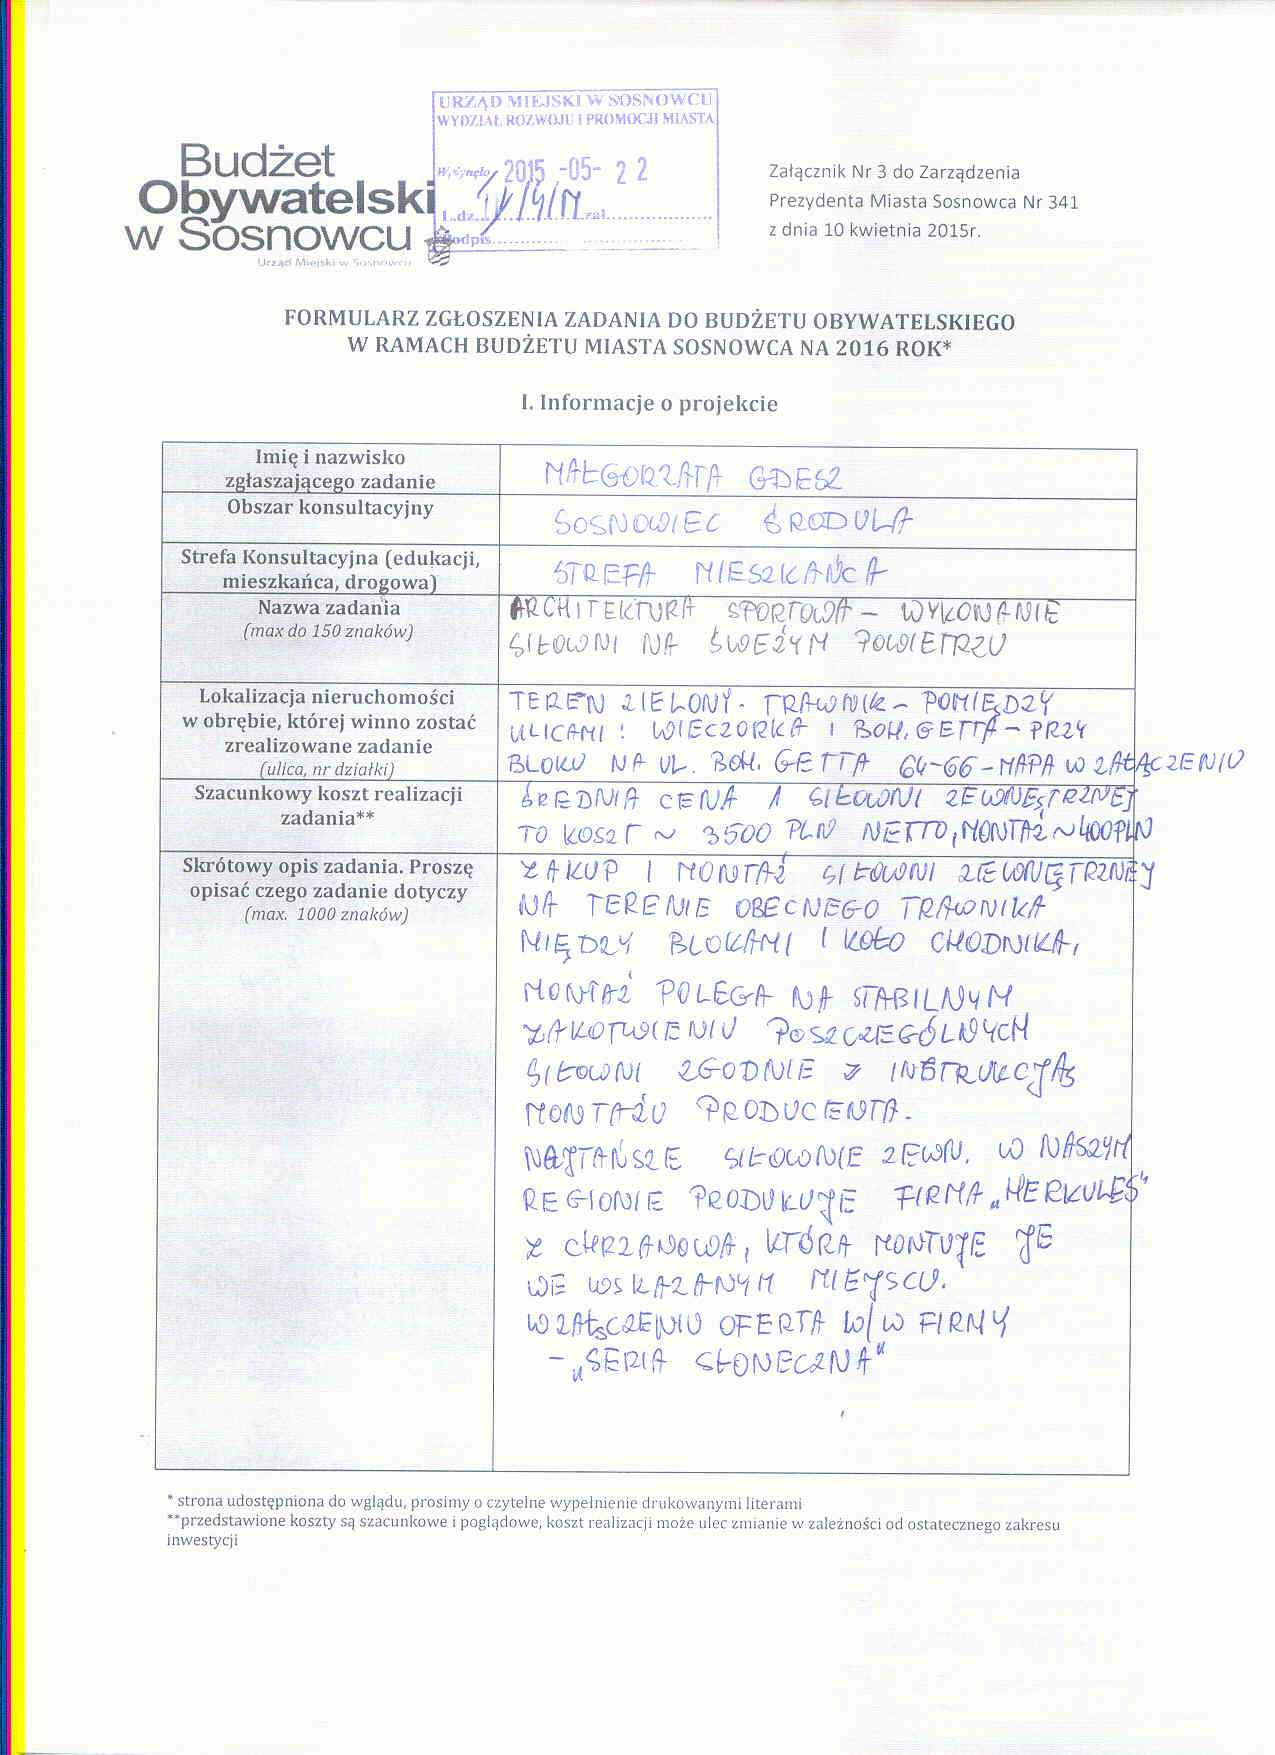 URZĄD MIEJSKI W SOSNOWCU
WYDZIAŁ ROZWOJU I PROMOCJI MIASTA
Wpłynęło 2015 -05- 2 2
L.dz. zał.
Podpis
Budżet
Obywatelski
w Sosnowcu
Urząd Miejski w Sosnowcu
Załącznik Nr 3 do Zarządzenia
Prezydenta Miasta Sosnowca Nr 341
z dnia 10 kwietnia 2015r.
FORMULARZ ZGŁOSZENIA ZADANIA DO BUDŻETU OBYWATELSKIEGO
W RAMACH BUDŻETU MIASTA SOSNOWCA NA 2016 ROK*
I. Informacje o projekcie
Imię i nazwisko
zgłaszającego zadanie
MAŁGORZATA GDESZ
Obszar konsultacyjny
SOSNOWIEC ŚRODULA
Strefa Konsultacyjna (edukacji,
mieszkańca, drogowa)
STREFA MIESZKAŃCA
Nazwa zadania
(max do 150 znaków)
ARCHITEKTURA SPORTOWA – WYKONANIE
SIŁOWNI NA ŚWEŻYM POWIETRZU
Lokalizacja nieruchomości
w obrębie, której winno zostać
zrealizowane zadanie
(ulica, nr działki)
TEREN ZIELONY - TRAWNIK – POMIĘDZY
ULICAMI : WIECZORKA I BOH. GETTA – PRZY
BLOKU NA UL. BOH. GETTA 64-66 – MAPA W ZAŁĄCZENIU
Szacunkowy koszt realizacji
zadania**
ŚREDNIA CENA 1 SIŁOWNI ZEWNĘTRZNEJ
TO KOSZT ~ 3500 PLN NETTO, MONTAŻ ~ 400 PLN
Skrótowy opis zadania. Proszę
opisać czego zadanie dotyczy
(max. 1000 znaków)
ZAKUP I MONTAŻ SIŁOWNI ZEWNĘTRZNEJ
NA TERENIE OBECNEGO TRAWNIKA
MIĘDZY BLOKAMI I KOŁO CHODNIKA,
MONTAŻ POLEGA NA STABILNYM
ZAKOTWIENIU POSZCZEGÓLNYCH
SIŁOWNI ZGODNIE Z INSTRUKCJĄ
MONTAŻU PRODUCENTA.
NAJTAŃSZE SIŁOWNIE ZEWN. W NASZYM
REGIONIE PRODUKUJE FIRMA „HERKULES"
Z CHRZANOWA, KTÓRA MONTUJE JE
WE WSKAZANYM MIEJSCU.
W ZAŁĄCZENIU OFERTA W/W FIRMY
– „SERIA SŁONECZNA"
* strona udostępniona do wglądu, prosimy o czytelne wypełnienie drukowanymi literami
**przedstawione koszty są szacunkowe i poglądowe, koszt realizacji może ulec zmianie w zależności od ostatecznego zakresu
inwestycji